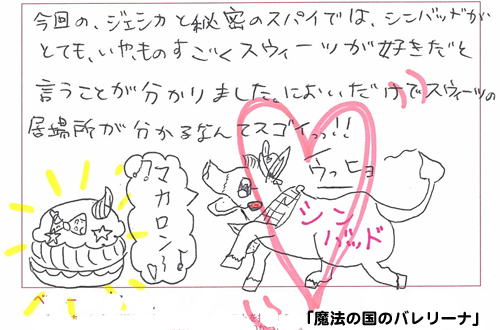 今回の、ジェシカと秘密のスパイでは、シンバッドが
とても、いや、ものすごくスウィーツが好きだと
言うことが分かりました。においだけでスウィーツの
居場所が分かるなんてスゴイっっ!!
マカロン〜
ウッヒョ
シンバッド
「魔法の国のバレリーナ」